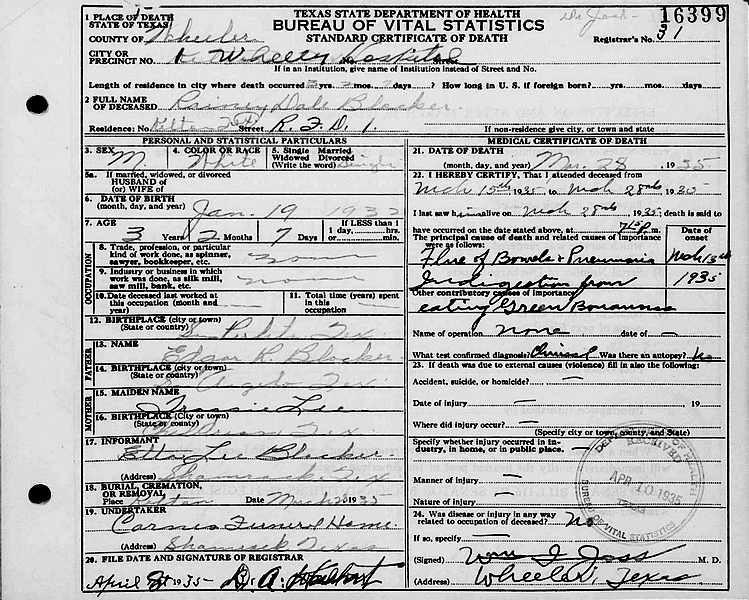 TEXAS STATE DEPARTMENT OF HEALTH
BUREAU OF VITAL STATISTICS
STANDARD CERTIFICATE OF DEATH
16399
Registrar's No. 31
1 PLACE OF DEATH
STATE OF TEXAS
COUNTY OF Wheeler
CITY OR
PRECINCT NO. Wheeler Hospital
If in an Institution, give name of Institution instead of Street and No.
Length of residence in city where death occurred 3 yrs. 2 mos. 7 days? How long in U. S. if foreign born? yrs. mos. days?
2 FULL NAME
OF DECEASED Dale Blocker
Residence: No. Street R.F.D. 1 If non-residence give city, or town and state
PERSONAL AND STATISTICAL PARTICULARS
3. SEX M
4. COLOR OR RACE White
5. Single Married
Widowed Divorced
(Write the word) Single
5a. If married, widowed, or divorced
HUSBAND OF
(or) WIFE OF
6. DATE OF BIRTH
(month, day, and year) Jan. 19 1932
7. AGE 3 Years 2 Months 7 Days
IF LESS than 1
1 day, hrs.
or min.
OCCUPATION
8. Trade, profession, or particular
kind of work done, as spinner,
sawyer, bookkeeper, etc. none
9. Industry or business in which
work was done, as silk mill,
saw mill, bank, etc. none
10. Date deceased last worked at
this occupation (month and
year)
11. Total time (years) spent
in this
occupation
12. BIRTHPLACE (City or town)
(State or country) Tex
FATHER
13. NAME Edgar R. Blocker
14. BIRTHPLACE (city or town)
(State or country) Angelo Tex.
MOTHER
15. MAIDEN NAME Lee
16. BIRTHPLACE (City or town)
(State or country) Tex.
17. INFORMANT Lee Blocker
(Address) Shamrock Tex
18. BURIAL, CREMATION,
OR REMOVAL
Place Date 1935
19. UNDERTAKER
Funeral Home
(Address) Shamrock Texas
20. FILE DATE AND SIGNATURE OF REGISTRAR
April 1935
MEDICAL CERTIFICATE OF DEATH
21. DATE OF DEATH
(month, day, and year) Mar. 28 1935
22. I HEREBY CERTIFY, That I attended deceased from
Mch 15th 1935 to Mch 28th 1935
I last saw him alive on Mch 28th, 1935; death is said to
have occurred on the date stated above, at p. m.
The principal cause of death and related causes of importance
were as follows:
Date of
onset
Flux of Bowels & Pneumonia Mch 13th
Indigestion from 1935
Other contributory causes of importance:
eating Green Bananas
Name of operation none date of —
What test confirmed diagnosis? Clinical Was there an autopsy? No
23. If death was due to external causes (violence) fill in also the following:
Accident, suicide, or homicide? —
Date of injury — 19
Where did injury occur? —
(Specify city or town, county, and State)
Specify whether injury occurred in in-
dustry, in home, or in public place. —
Manner of injury —
Nature of injury —
24. Was disease or injury in any way
related to occupation of deceased? No
If so, specify —
(Signed) M. D.
(Address) Wheeler, Texas
RECEIVED
APR 10 1935
TEXAS
BUREAU OF VITAL STATISTICS